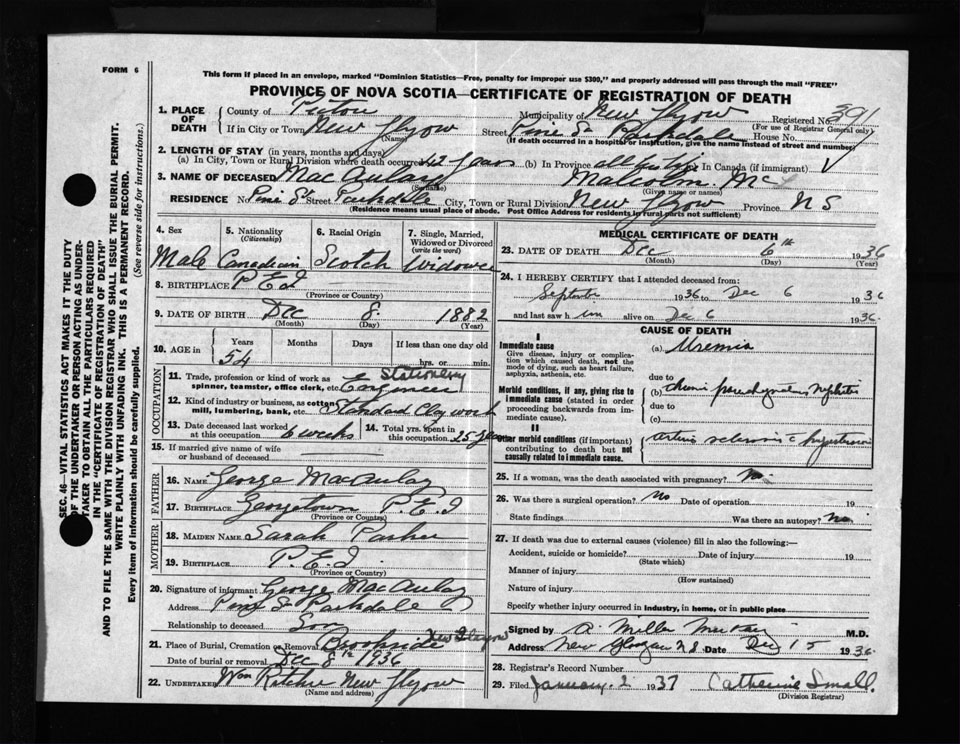 FORM 6
This form if placed in an envelope, marked "Dominion Statistics—Free, penalty for improper use $300," and properly addressed will pass through the mail "FREE"
PROVINCE OF NOVA SCOTIA—CERTIFICATE OF REGISTRATION OF DEATH
1. PLACE OF DEATH County of Pictou Municipality of New Glgow Registered No.
(For use of Registrar General only)
If in City or Town New Glgow (Name) Street Pine St Parkdale House No.
(If death occurred in a hospital or institution, give the name instead of street and number)
2. LENGTH OF STAY (in years, months and days)
(a) In City, Town or Rural Division where death occurred 42 years (b) In Province all his life in Canada (if immigrant)
3. NAME OF DECEASED MacAulay Malcolm Mc
(Surname) (Given name or names)
RESIDENCE No. Pine St Street Parkdale City, Town or Rural Division New Glgow Province N S
(Residence means usual place of abode. Post Office Address for residents in rural parts not sufficient)
4. Sex Male
5. Nationality (Citizenship) Canadian
6. Racial Origin Scotch
7. Single, Married, Widowed or Divorced (write the word) Widower
8. BIRTHPLACE P E I
(Province or Country)
9. DATE OF BIRTH Dec 8 1882
(Month) (Day) (Year)
10. AGE in Years 54 Months Days If less than one day old hrs. or min.
OCCUPATION
11. Trade, profession or kind of work as spinner, teamster, office clerk, etc. Stationery Engineer
12. Kind of industry or business, as cotton mill, lumbering, bank, etc. Standard Clay work
13. Date deceased last worked at this occupation 6 weeks
14. Total yrs. spent in this occupation 25 years
15. If married give name of wife or husband of deceased
FATHER
16. NAME George MacAulay
17. BIRTHPLACE Georgetown P.E.I
(Province or Country)
MOTHER
18. MAIDEN NAME Sarah
19. BIRTHPLACE P.E.I.
(Province or Country)
20. Signature of informant George MacAulay
Address Pine St Parkdale
Relationship to deceased Son
21. Place of Burial, Cremation or Removal Brookside New Glasgow
Date of burial or removal Dec 8th 1936
22. UNDERTAKER Wm Ritchie New Glgow
(Name and address)
MEDICAL CERTIFICATE OF DEATH
23. DATE OF DEATH Dec 6th 1936
(Month) (Day) (Year)
24. I HEREBY CERTIFY that I attended deceased from:
September 1936 to Dec 6 1936
and last saw him alive on Dec 6 1936.
CAUSE OF DEATH
I
Immediate cause
Give disease, injury or complication which caused death, not the mode of dying, such as heart failure, asphyxia, asthenia, etc.
(a) Uremia
due to
Morbid conditions, if any, giving rise to immediate cause (stated in order proceeding backwards from immediate cause).
(b) Chronic parenchymatous nephritis
due to
(c)
II
Other morbid conditions (if important) contributing to death but not causally related to immediate cause.
25. If a woman, was the death associated with pregnancy?
26. Was there a surgical operation? No Date of operation 19
State findings Was there an autopsy? no
27. If death was due to external causes (violence) fill in also the following:—
Accident, suicide or homicide? Date of injury 19
(State which)
Manner of injury
(How sustained)
Nature of injury
Specify whether injury occurred in industry, in home, or in public place
Signed by A Miller Murray M.D.
Address New Glasgow N S Date Dec 15 1936
28. Registrar's Record Number
29. Filed January 2 1937 Catherine Small.
(Division Registrar)
SEC. 46—VITAL STATISTICS ACT MAKES IT THE DUTY
OF THE UNDERTAKER OR PERSON ACTING AS UNDER-
TAKER TO OBTAIN ALL THE PARTICULARS REQUIRED
IN THE "CERTIFICATE OF REGISTRATION OF DEATH"
AND TO FILE THE SAME WITH THE DIVISION REGISTRAR WHO SHALL ISSUE THE BURIAL PERMIT.
WRITE PLAINLY WITH UNFADING INK. THIS IS A PERMANENT RECORD.
Every item of information should be carefully supplied. (See reverse side for instructions.)